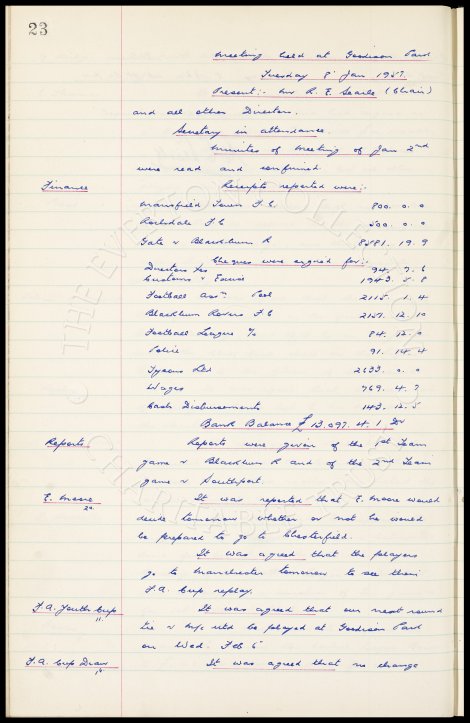 23
Meeting held at Goodison Park
Tuesday 8' Jan 1957.
Present:- Mr R. E. Searle (Chair)
and all other Directors.
Secretary in attendance.
Minutes of Meeting of Jan 2nd
were read and confirmed.
Finance Receipts reported were:-
Mansfield Town F.C. 800. 0. 0
Rochdale F C 500. 0. 0
Gate v Blackburn R 8581. 19. 9
Cheques were signed for:-
Directors fes 94. 7. 6
Customs & Excise 1943. 5. 8
Football Assn. Pool 2115. 1. 4
Blackburn Rovers F C 2157. 12. 10
Football League % 84. 12. 0
Police 91. 14. 4
Tysons Ltd 2633. 0. 0
Wages 769. 4. 7
Cash Disbursements 143. 12. 5
Bank Balance £13,097. 4. 1 Dr
Reports Reports were given of the 1st Team
game v Blackburn R and of the 2nd Team
game v Southport.
E. Moore It was reported that E. Moore would
decide tomorrow whether or not he would
be prepared to go to Chesterfield.
It was agreed that the players
go to Manchester tomorrow to see their
F.A. Cup replay.
F.A. Youth Cup It was agreed that our next round
tie v M/c Utd be played at Goodison Park
on Wed. Feb 6'
F.A. Cup Draw It was agreed that no change
THE EVERTON COLLECTION
CHARITABLE TRUST